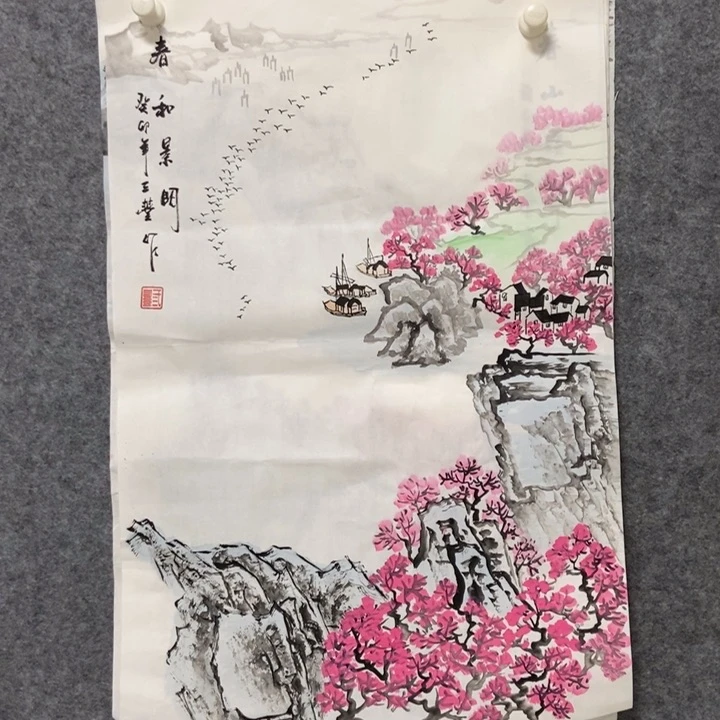 春和景明
癸卯年三䕽作